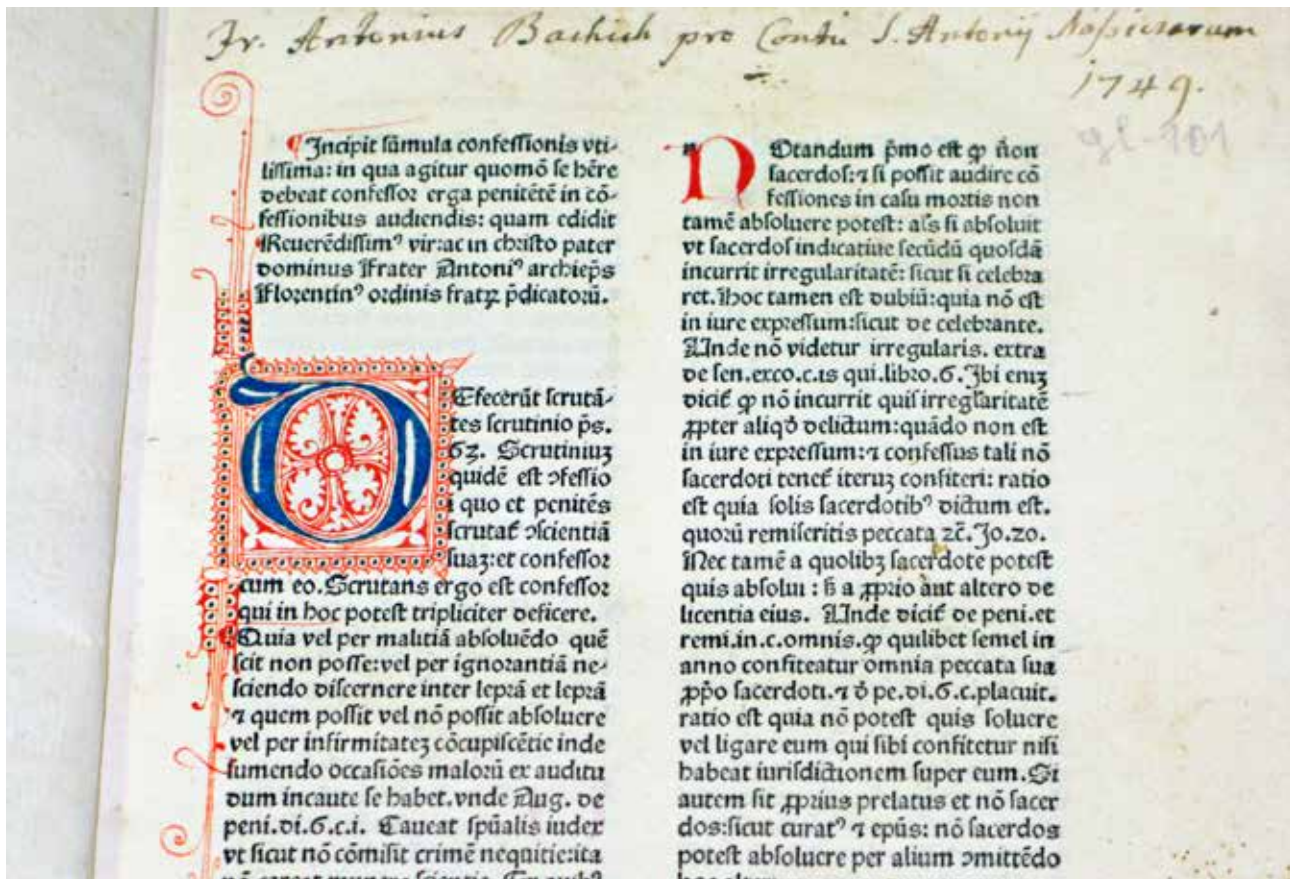 Fr. Antonius Bachich pro Contu S. Antonij
1749.
gl-101
¶Incipit sūmula confessionis vti-
lissima: in qua agitur quomō se hēre
debeat confessor erga penitētē in cō-
fessionibus audiendis: quam edidit
Reuerēdissimꝰ vir: ac in christo pater
dominus Frater Antoniꝰ archiep̄s
Florentinꝰ ordinis fratꝝ p̄dicatoꝝū.
DEfecerūt scrutā-
tes scrutinio p̄s.
63. Scrutiniuȝ
quidē est ꝯfessio
i quo et penitēs
scrutat̄ ꝯscientiā
suaȝ: et confessor
cum eo. Scrutans ergo est confessor
qui in hoc potest tripliciter deficere.
Quia vel per malitiā absoluēdo quē
scit non posse: vel per ignorantiā ne-
sciendo discernere inter leprā et leprā
⁊ quem possit vel nō possit absoluere
vel per infirmitateȝ cōcupiscētie inde
sumendo occasiōes maloꝝū ex auditu
dum incaute se habet. vnde Aug. de
peni. di. 6. c. i. Caueat sp̄ualis iudex
vt sicut nō cōmisit crimē nequitie: ita
NOtandum p̄mo est ꝙ n̄on
sacerdos: ⁊ si possit audire cō
fessiones in casu mortis non
tamē absoluere potest: als si absoluit
vt sacerdos indicatiue secūdū quosdā
incurrit irregularitatē: sicut si celebra
ret. Hoc tamen est dubiū: quia nō est
in iure expressum: sicut de celebrante.
Unde nō videtur irregularis. extra
de sen. exco. c. is qui. libro. 6. Ibi eniȝ
dicit̄ ꝙ nō incurrit quis irreglaritatē
ꝓpter aliqd̄ delictum: quādo non est
in iure expressum: ⁊ confessus tali nō
sacerdoti tenet̄ iteruȝ confiteri: ratio
est quia solis sacerdotibꝰ dictum est.
quorū remiseritis peccata ⁊c̄. Jo. 20.
Nec tamē a quolibȝ sacerdote potest
quis absolui: ß a ꝓprio aut altero de
licentia eius. Unde dicit̄ de peni. et
remi. in. c. omnis. ꝙ quilibet semel in
anno confiteatur omnia peccata sua
ꝓp̄o sacerdoti. ⁊ d̄ pe. di. 6. c. placuit.
ratio est quia nō potest quis soluere
vel ligare eum qui sibi confitetur nisi
habeat iurisdictionem super eum. Si
autem sit ꝓprius prelatus et nō sacer
dos: sicut curatꝰ ⁊ epūs: nō sacerdos
potest absoluere per alium ꝯmittēdo